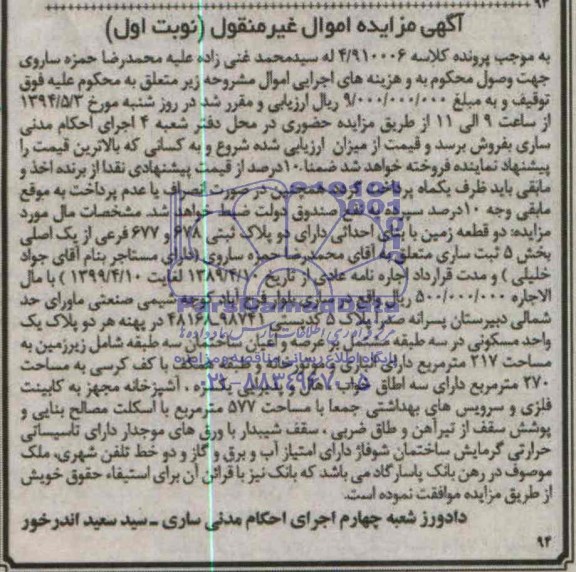 ۹۴
آگهی مزایده اموال غیرمنقول (نوبت اول)
به موجب پرونده کلاسه ۴/۹۱۰۰۰۶ له سیدمحمد غنی زاده علیه محمدرضا حمزه ساروی
جهت وصول محکوم به و هزینه های اجرایی اموال مشروحه زیر متعلق به محکوم علیه فوق
توقیف و به مبلغ ۹/۰۰۰/۰۰۰/۰۰۰ ریال ارزیابی و مقرر شد در روز شنبه مورخ ۱۳۹۴/۵/۳
از ساعت ۹ الی ۱۱ از طریق مزایده حضوری در محل دفتر شعبه ۴ اجرای احکام مدنی
ساری بفروش برسد و قیمت از میزان ارزیابی شده شروع و به کسانی که بالاترین قیمت را
پیشنهاد نماینده فروخته خواهد شد ضمنا ۱۰درصد از قیمت پیشنهادی نقدا از برنده اخذ و
مابقی باید ظرف یکماه پرداخت گردد همچنین در صورت انصراف یا عدم پرداخت به موقع
مابقی وجه ۱۰درصد سپرده به نفع صندوق دولت ضبط خواهد شد. مشخصات مال مورد
مزایده: دو قطعه زمین با بنای احداثی دارای دو پلاک ثبتی ۶۷۸ و ۶۷۷ فرعی از یک اصلی
بخش ۵ ثبت ساری متعلق به آقای محمدرضا حمزه ساروی (دارای مستاجر بنام آقای جواد
خلیلی ) و مدت قرارداد اجاره نامه عادی از تاریخ ۱۳۸۹/۴/۱۰ لغایت ۱۳۹۹/۴/۱۰ ) با مال
الاجاره ۵۰۰/۰۰۰/۰۰۰ ریال واقع در ساری بلوار فرح آباد کوچه شیمی صنعتی ماورای حد
شمالی دبیرستان پسرانه صفرا پلاک ۵ کدپستی ۴۸۱۶۸۹۸۷۴۱ در پهنه هر دو پلاک یک
واحد مسکونی در سه طبقه مشتمل بر عرصه و اعیان ساختمان سه طبقه شامل زیرزمین به
مساحت ۲۱۷ مترمربع دارای انباری و موتورخانه و طبقه همکف با کف کرسی به مساحت
۲۷۰ مترمربع دارای سه اطاق خواب، هال و پذیرایی ، آشپزخانه مجهز به کابینت
فلزی و سرویس های بهداشتی جمعا با مساحت ۵۷۷ مترمربع با اسکلت مصالح بنایی و
پوشش سقف از تیرآهن و طاق ضربی ، سقف شیبدار با ورق های موجدار دارای تاسیساتی
حرارتی گرمایش ساختمان شوفاژ دارای امتیاز آب و برق و گاز و دو خط تلفن شهری، ملک
موصوف در رهن بانک پاسارگاد می باشد که بانک نیز با قرائن آن برای استیفاء حقوق خویش
از طریق مزایده موافقت نموده است.
دادورز شعبه چهارم اجرای احکام مدنی ساری ـ سید سعید اندرخور
۹۴
ParsNamadData
پایگاه اطلاع رسانی مناقصه و مزایده
۰۲۱-۸۸۳۴۹۶۷۰-۵